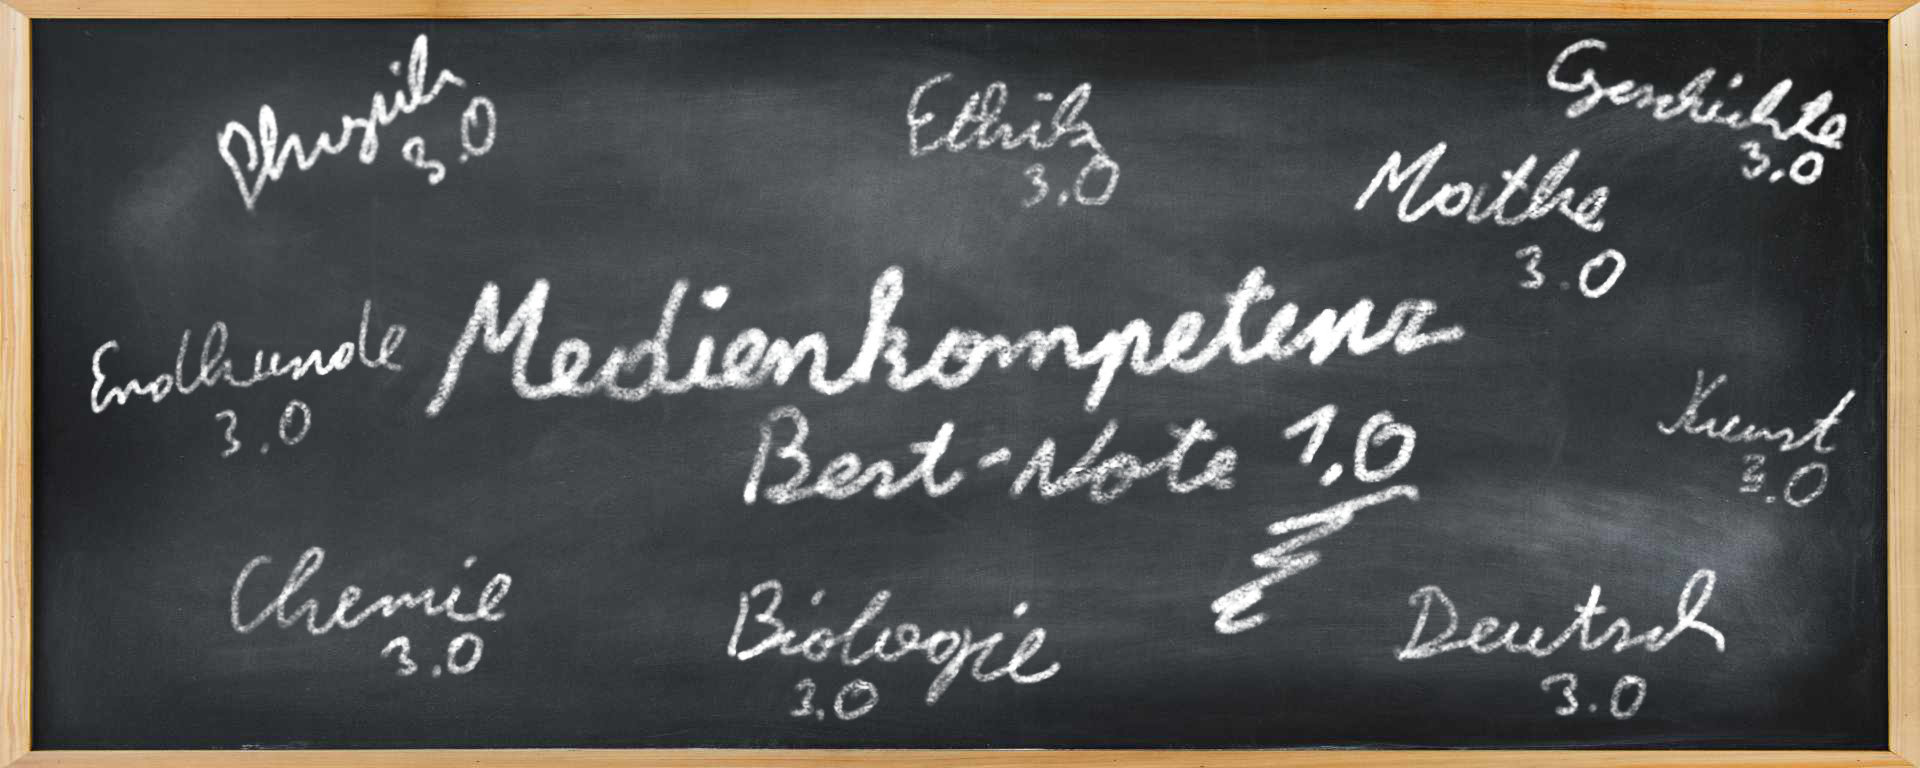 Physik
3.0
Ethik
3.0
Geschichte
3.0
Mathe
3.0
Erdkunde
3.0
Medienkompetenz
Best-Note 1.0
Kunst
3.0
Chemie
3.0
Biologie
3.0
Deutsch
3.0